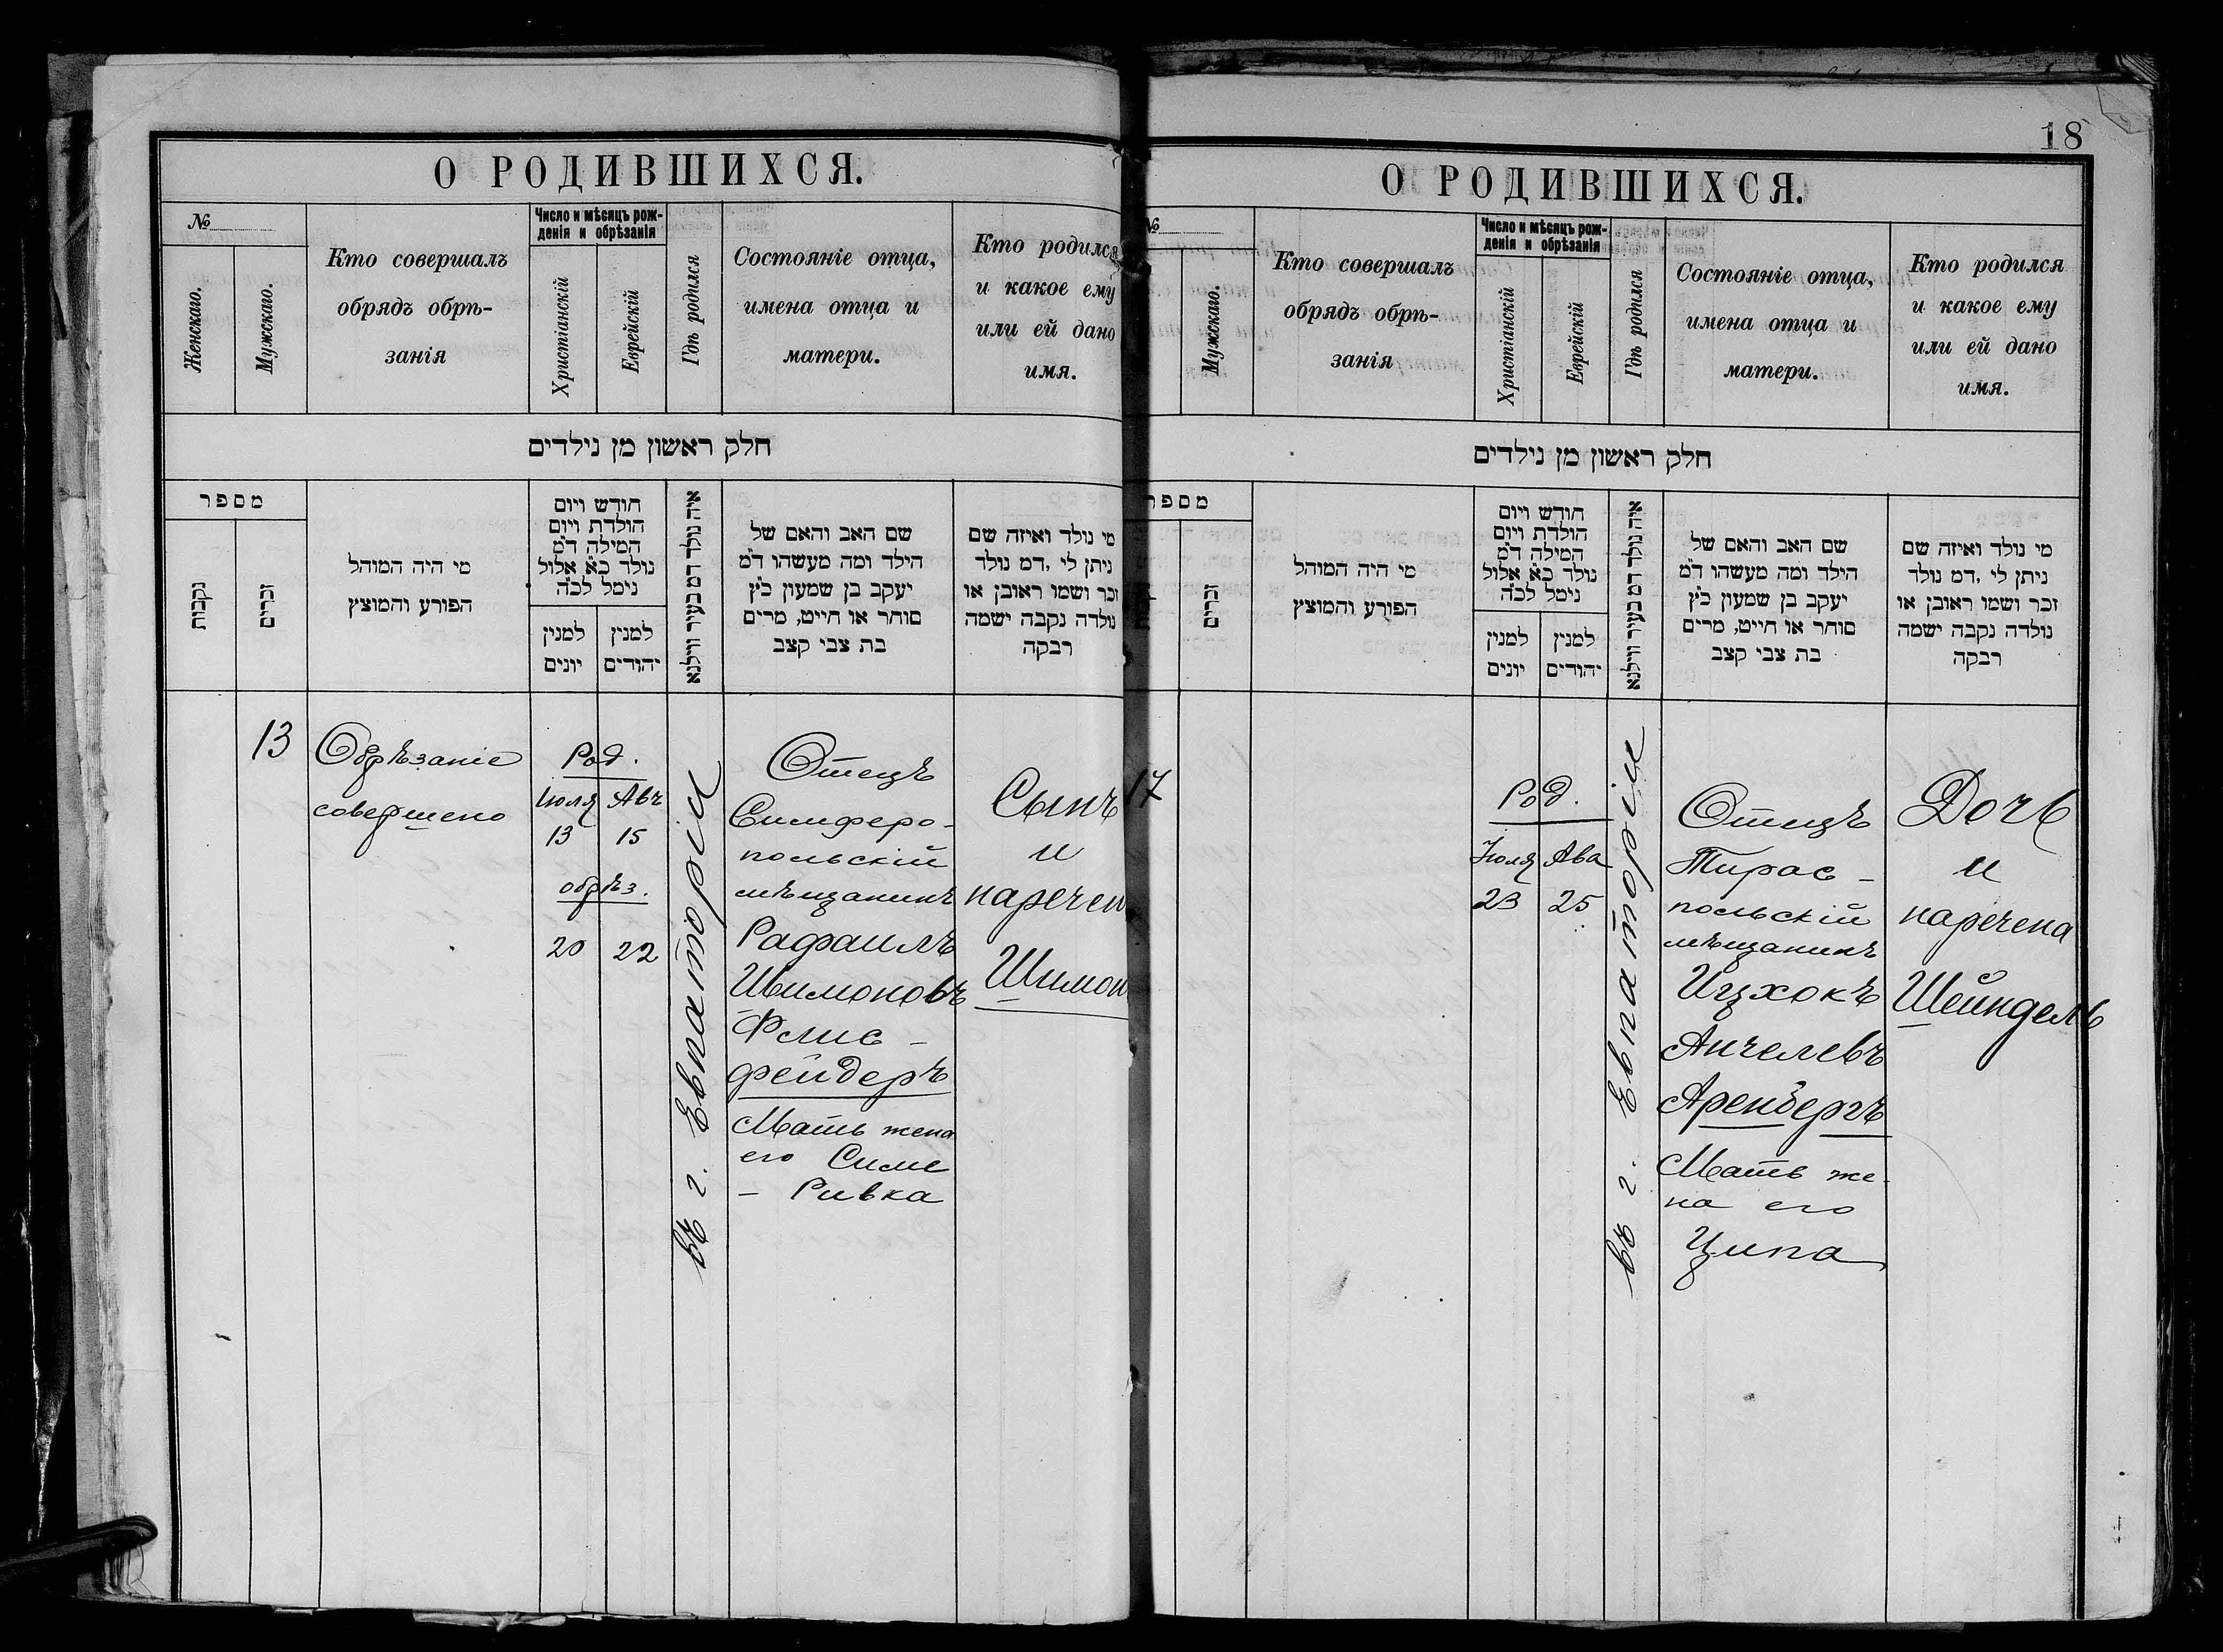 О РОДИВШИХСЯ.
№
Женскаго.
Мужскаго.
Кто совершалъ
обрядъ обрѣ-
занія
Число и мѣсяцъ рож-
денія и обрѣзанія
Христіанскій
Еврейскій
Гдѣ родился
Состояніе отца,
имена отца и
матери.
Кто родился
и какое ему
или ей дано
имя.
חלק ראשון מן נילדים
מספר
נקבות
זכרים
מי היה המוהל
הפורע והמוצץ
חודש ויום
הולדת ויום
המילה ד"מ
נולד כ"א אלול
נימל לכ"ה
למנין
יונים
למנין
יהודים
איה נולד דמ בעיר ווילנא
שם האב והאם של
הילד ומה מעשהו ד"מ
יעקב בן שמעון כ"ץ
סוחר או חייט, מרים
בת צבי קצב
מי נולד ואיזה שם
ניתן לי ,דמ נולד
זכר ושמו ראובן או
נולדה נקבה ישמה
רבקה
13
Обрѣзаніе
совершено
Род.
Іюля Авг
13 15
обрѣз.
20 22
въ г. Евпаторіи
Отецъ
Симферо-
польскій
мѣщанинъ
Рафаилъ
Шимоновъ
Флис-
фейдеръ
Мать жена
его Симе
- Ривка
Сынъ
и
наречен
Шимон
18
О РОДИВШИХСЯ.
№
Мужскаго.
Кто совершалъ
обрядъ обрѣ-
занія
Число и мѣсяцъ рож-
денія и обрѣзанія
Христіанскій
Еврейскій
Гдѣ родился
Состояніе отца,
имена отца и
матери.
Кто родился
и какое ему
или ей дано
имя.
חלק ראשון מן נילדים
מספר
זכרים
מי היה המוהל
הפורע והמוצץ
חודש ויום
הולדת ויום
המילה ד"מ
נולד כ"א אלול
נימל לכ"ה
למנין
יונים
למנין
יהודים
איה נולד דמ בעיר ווילנא
שם האב והאם של
הילד ומה מעשהו ד"מ
יעקב בן שמעון כ"ץ
סוחר או חייט, מרים
בת צבי קצב
מי נולד ואיזה שם
ניתן לי ,דמ נולד
זכר ושמו ראובן או
נולדה נקבה ישמה
רבקה
17
Род.
Іюля Ава
23 25
въ г. Евпаторіи
Отецъ
Тирас-
польскій
мѣщанинъ
Ицхокъ
Анчелевъ
Аренбергъ
Мать же-
на его
Ципа
Дочь
и
наречена
Шейндель